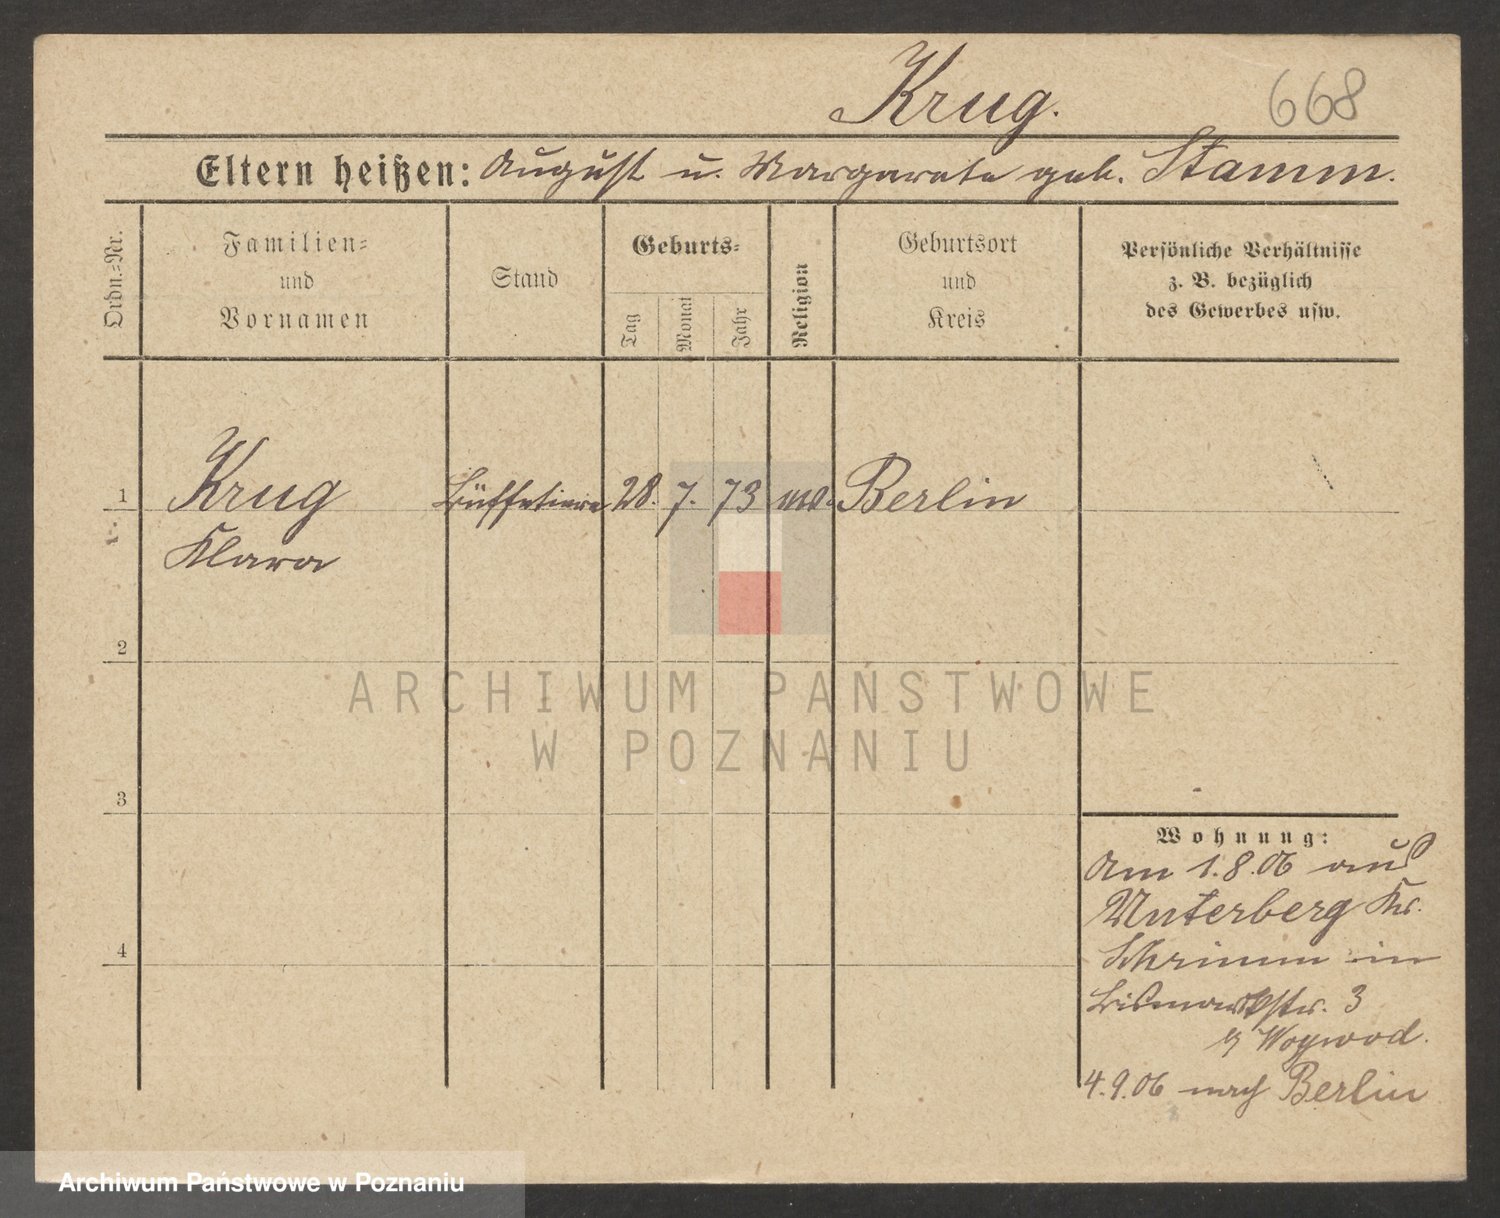 Krug.
668
Eltern heißen: August u. Margarete geb. Stamm.
Ordn.-Nr.
Familien-
und
Vornamen
Stand
Geburts-
Tag
Monat
Jahr
Religion
Geburtsort
und
Kreis
Persönliche Verhältnisse
z. B. bezüglich
des Gewerbes usw.
1 Krug Büffetiere 28. 7. 73 Berlin
Klara
2
ARCHIWUM PAŃSTWOWE
W POZNANIU
3
4
Wohnung:
Am 1.8.06 aus
Unterberg Kr.
Schrimm in
Bismarckstr. 3
Woywod.
4.9.06 nach Berlin
Archiwum Państwowe w Poznaniu